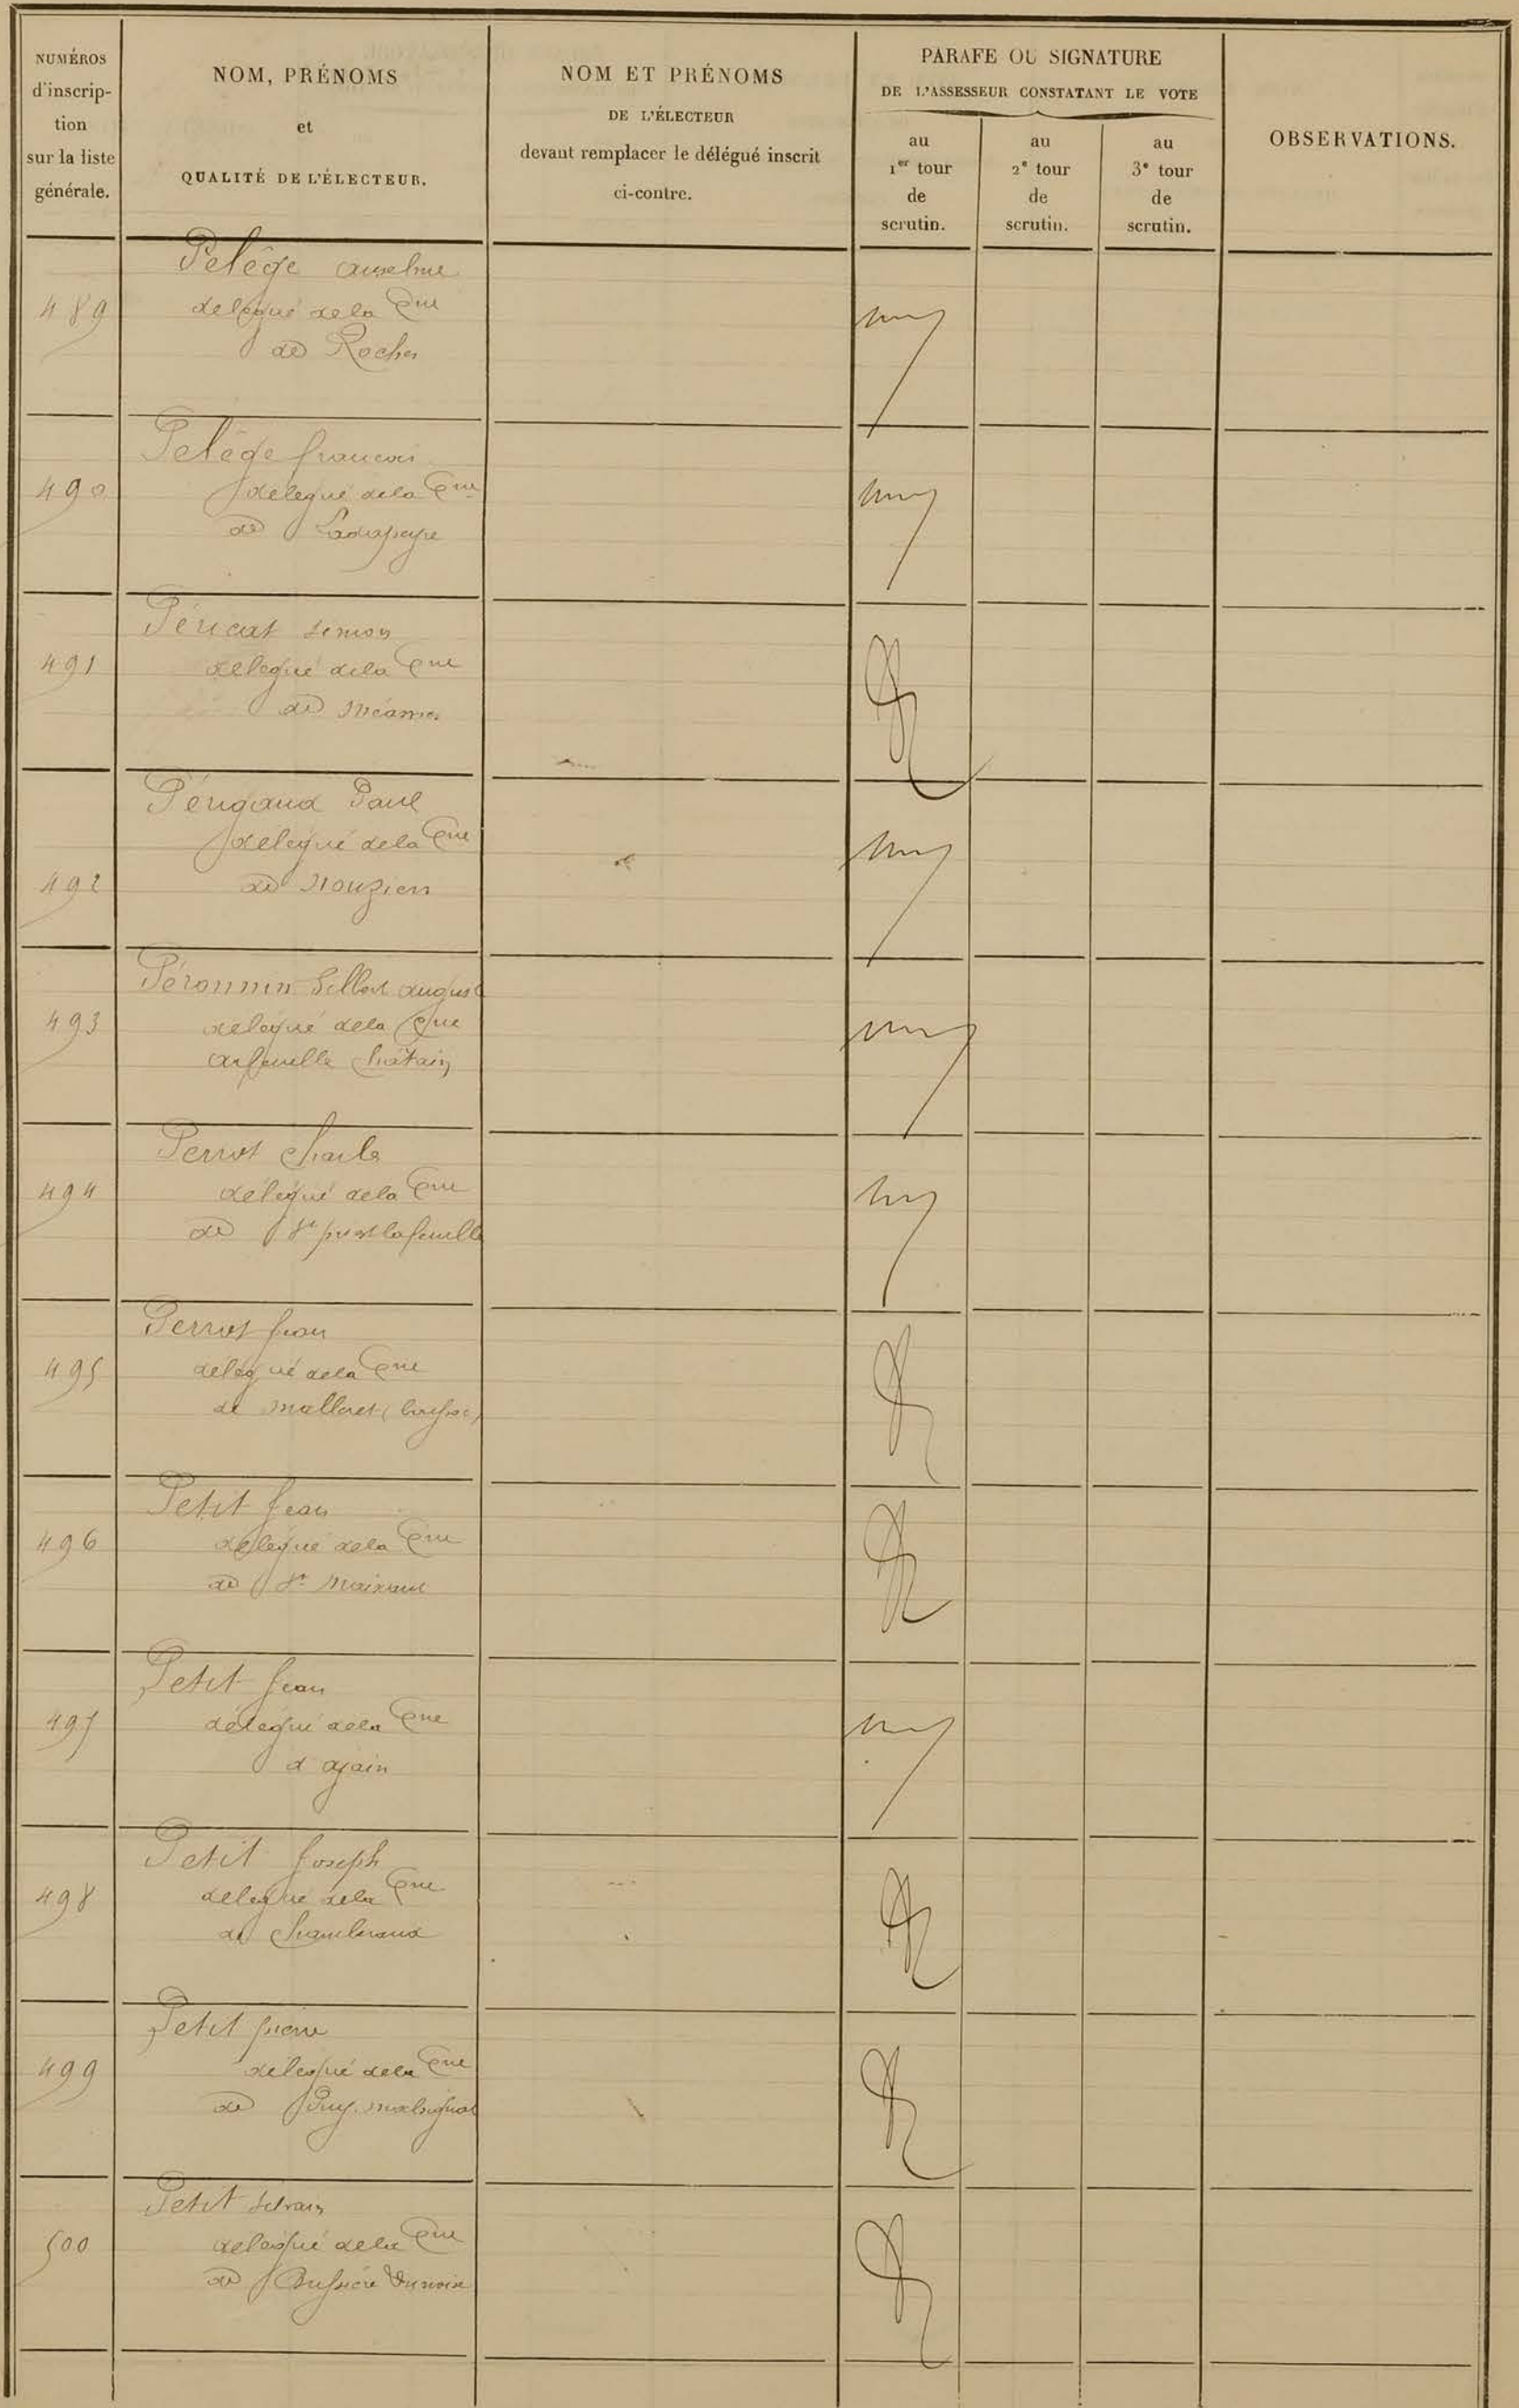 NUMÉROS
d'inscrip-
tion
sur la liste
générale.
NOM, PRÉNOMS
et
QUALITÉ DE L'ÉLECTEUR.
NOM ET PRÉNOMS
DE L'ÉLECTEUR
devant remplacer le délégué inscrit
ci-contre.
PARAFE OU SIGNATURE
DE L'ASSESSEUR CONSTATANT LE VOTE
au
1er tour
de
scrutin.
au
2e tour
de
scrutin.
au
3e tour
de
scrutin.
OBSERVATIONS.
Pelège anselme
489
délégué de la Cne
de Roches
Pelège francois
490
délégué de la Cne
de Ladapeyre
Péricat simon
491
délégué de la Cne
de Méasnes
Périgaud Paul
délégué de la Cne
492
de Nouziers
Péronnin Gilbert august
493
délégué de la Cne
arfeuille Châtain
Perrot Charles
494
délégué de la Cne
de St priest lafeuille
Perrot Jean
495
délégué de la Cne
de malleret (boussac)
Petit Jean
496
délégué de la Cne
de St Maixant
Petit Jean
497
délégué de la Cne
d ajain
Petit Joseph
498
délégué de la Cne
de Chamberaud
Petit pierre
499
délégué de la Cne
de Puy-malsignat
Petit silvain
500
délégué de la Cne
de Bussière Dunoise